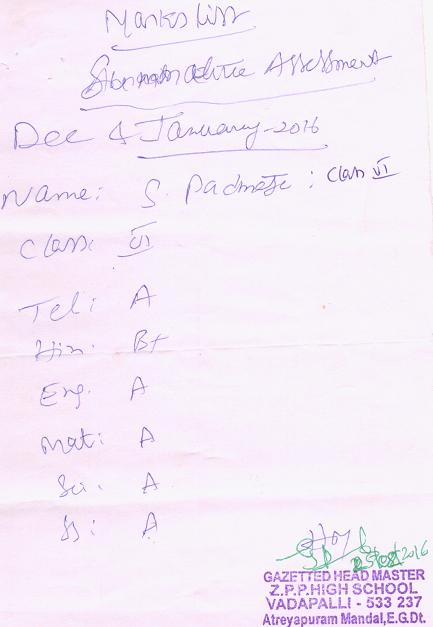 Marks List
Assessment
Dec & January-2016
Name: S. : Class VI
Class: VI
Tel: A
Hin: B+
Eng. A
Mat: A
Sci: A
SS: A
2016
GAZETTED HEAD MASTER
Z.P.P.HIGH SCHOOL
VADAPALLI - 533 237
Atreyapuram Mandal,E.G.Dt.